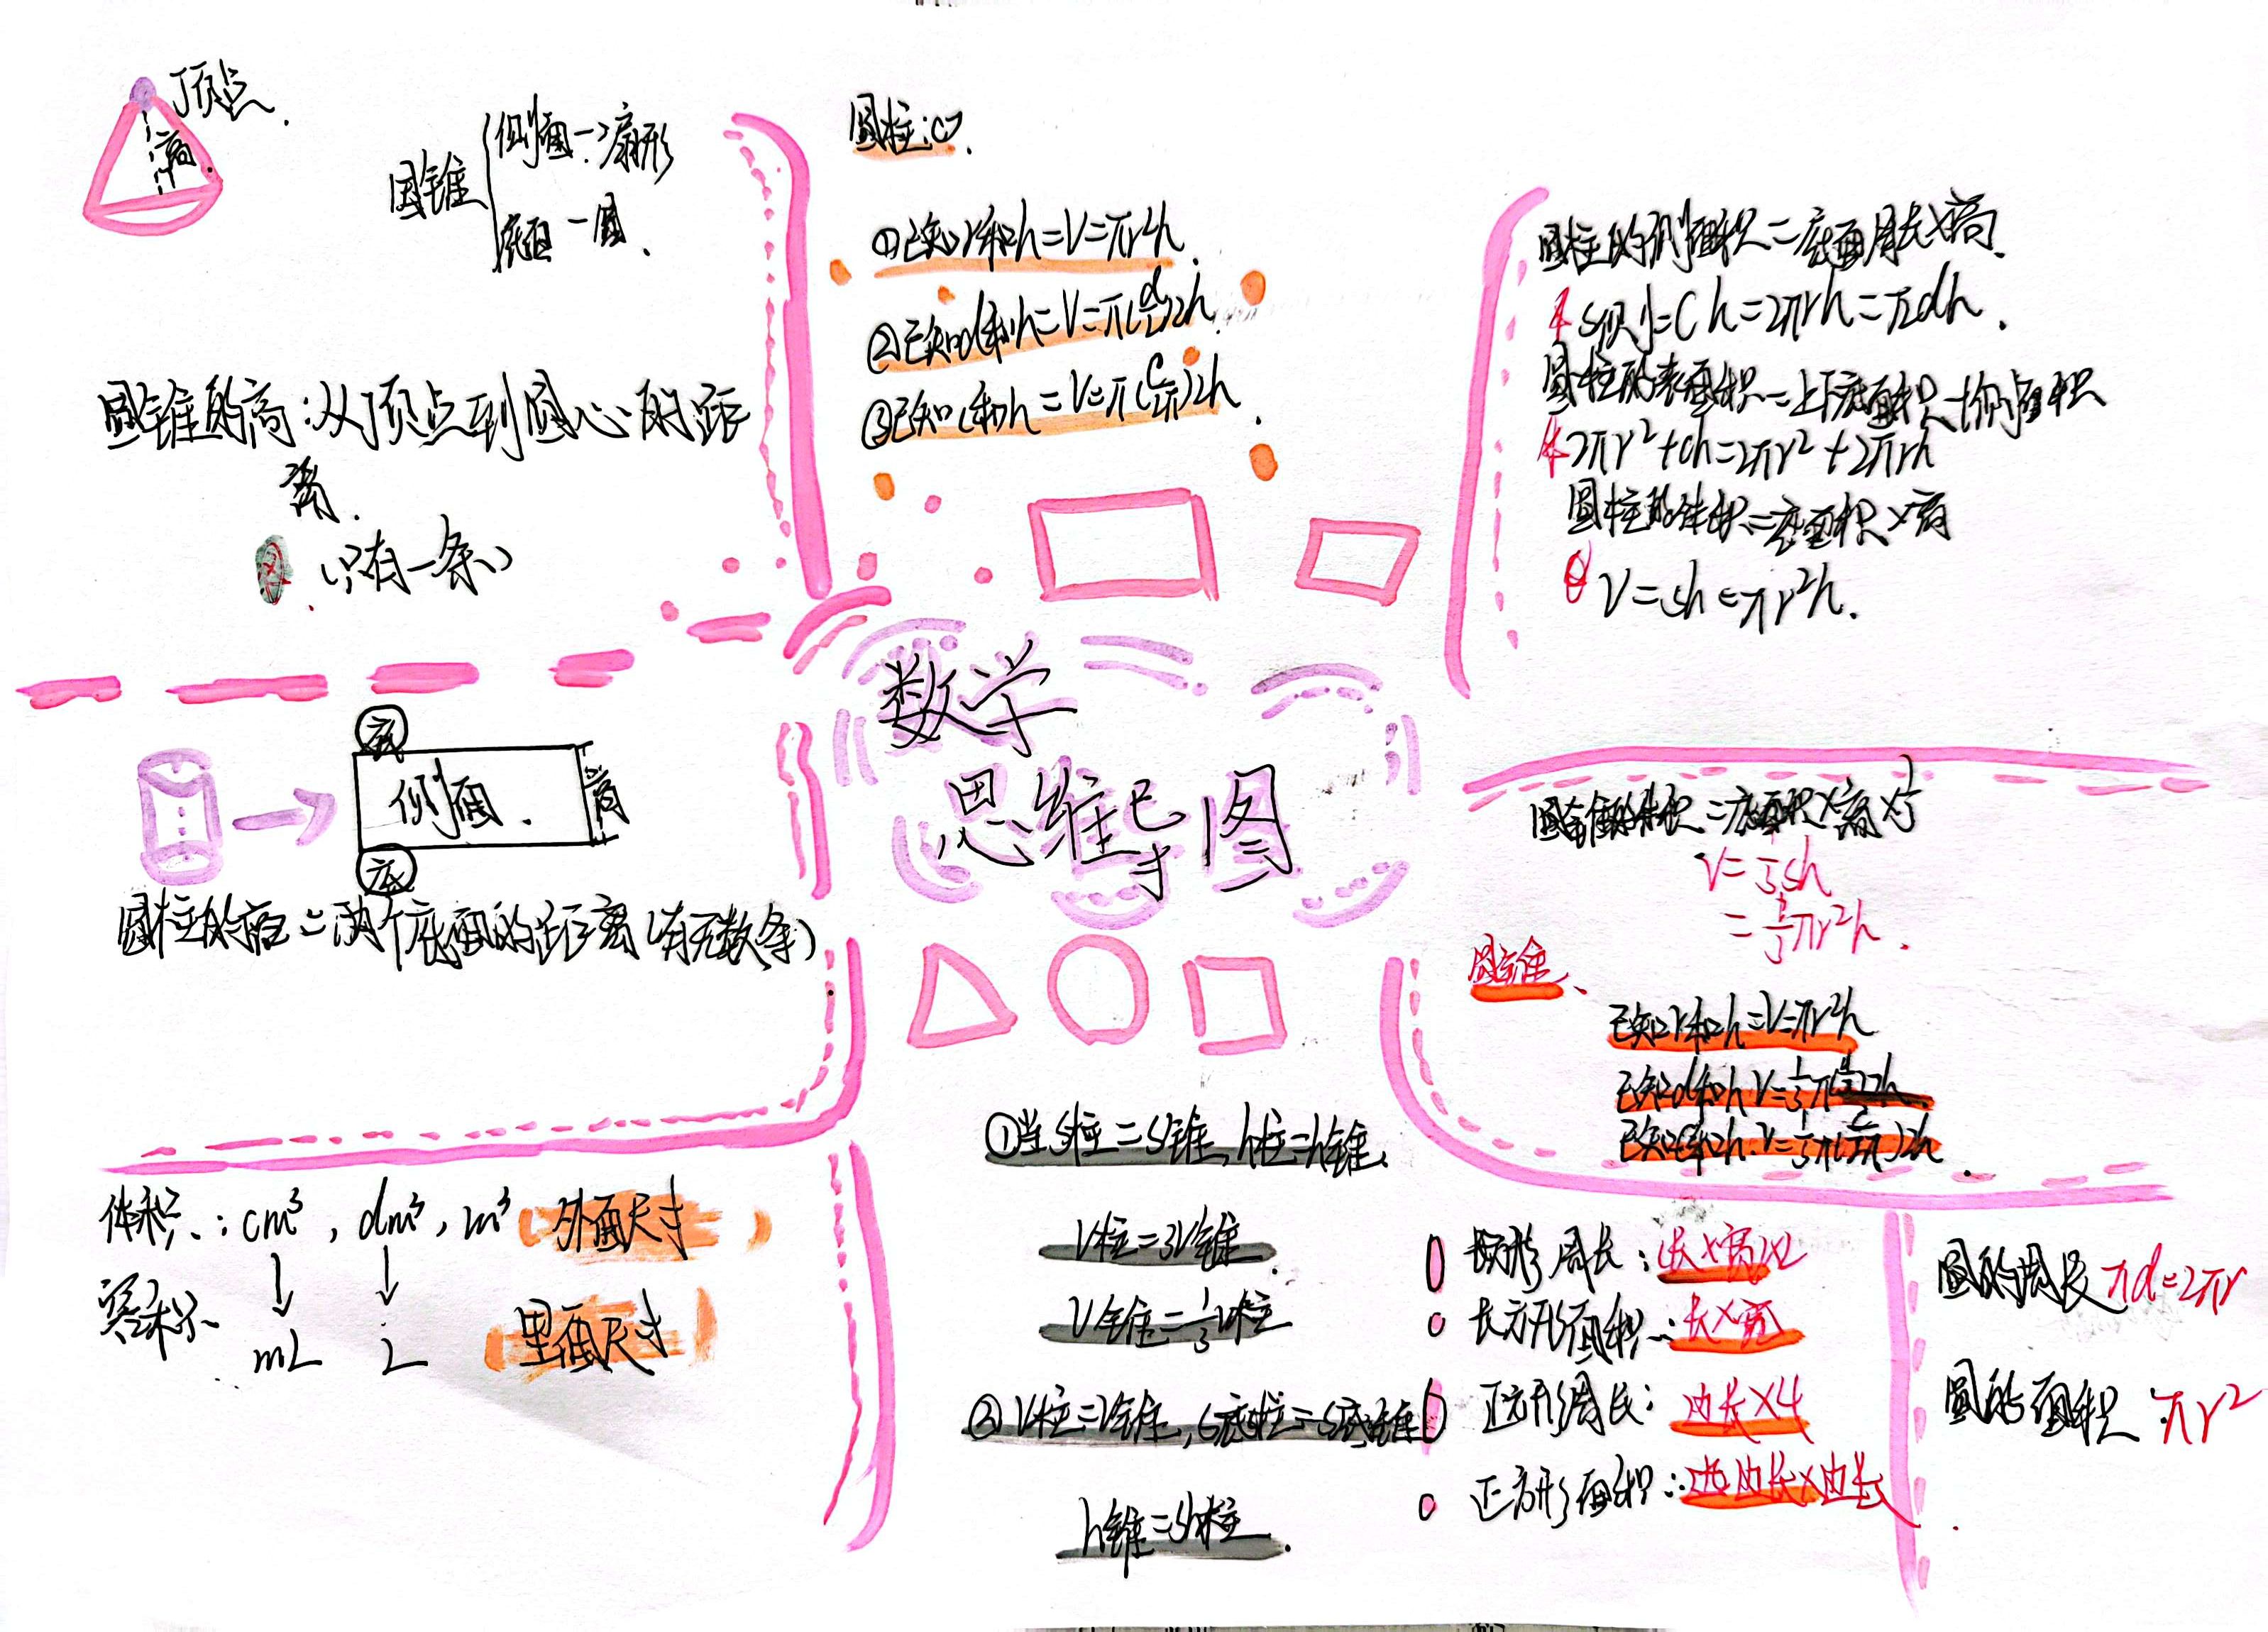 顶点.
高
圆锥
侧面→扇形
底面—圆.
圆锥的高:从顶点到圆心的距
离.
(只有一条)
圆柱:
①已知r和h=V=πr²h.
②已知d和h=V=π(d/2)2h.
③已知C和h=V=π(C/2π)2h.
圆柱的侧面积=底面周长×高.
S侧=Ch=2πrh=πdh.
圆柱的表面积=上下底面积+侧面积
2πr²+ch=2πr²+2πrh
圆柱的体积=底面积×高
V=sh=πr²h.
数学
思维导图
底
侧面.
高
底
圆柱的高=两个底面的距离(有无数条)
圆锥的体积=底面积×高×1/3
V=1/3sh
=1/3πr²h.
圆锥、
已知r和h=V=πr²h
已知d和h V=1/3π(d/2)2h.
已知C和h.V=1/3π(C/2π)2h.
体积:cm³,dm³,m³(外面尺寸)
↓ ↓
容积
mL L (里面尺寸)
①当S柱=S锥,h柱=h锥.
V柱=3V锥.
V锥=1/3V柱
②V柱=V锥,S底柱=S底锥
h锥=3h柱.
形周长:
长方形面积:长×宽
正方形周长:边长×4
正方形面积:边长×边长
圆的周长 πd=2πr
圆的面积 πr²